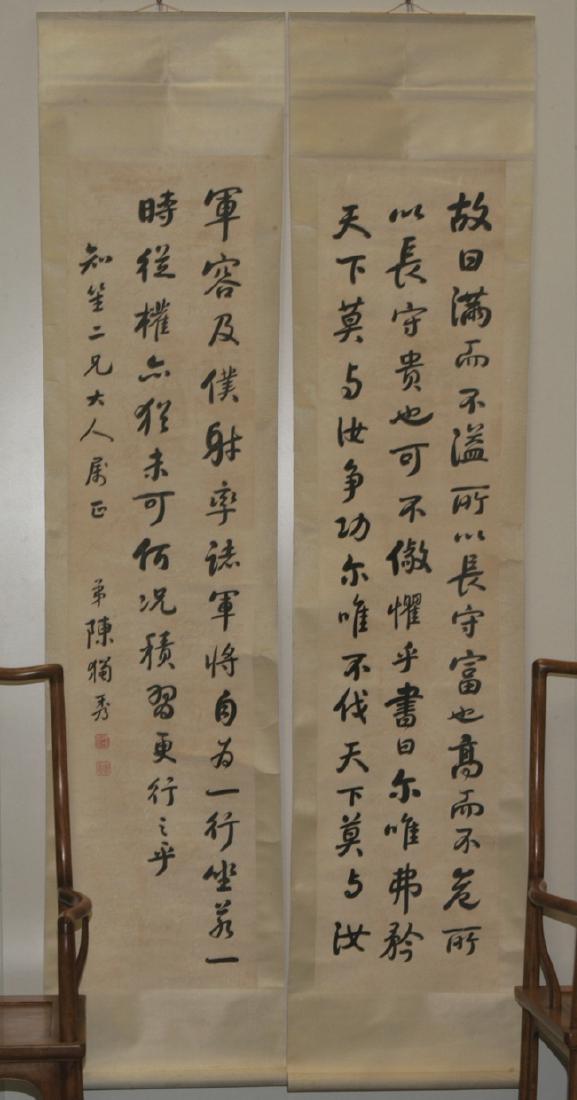 故曰滿而不溢所以長守富也高而不危所
以長守貴也可不儆懼乎書曰尔唯弗矜
天下莫与汝争功尔唯不伐天下莫与汝
軍容及僕射率諸軍將自为一行坐若一
時從權亦猶未可何況積習更行之乎
知笙二兄大人属正 弟陳獨秀